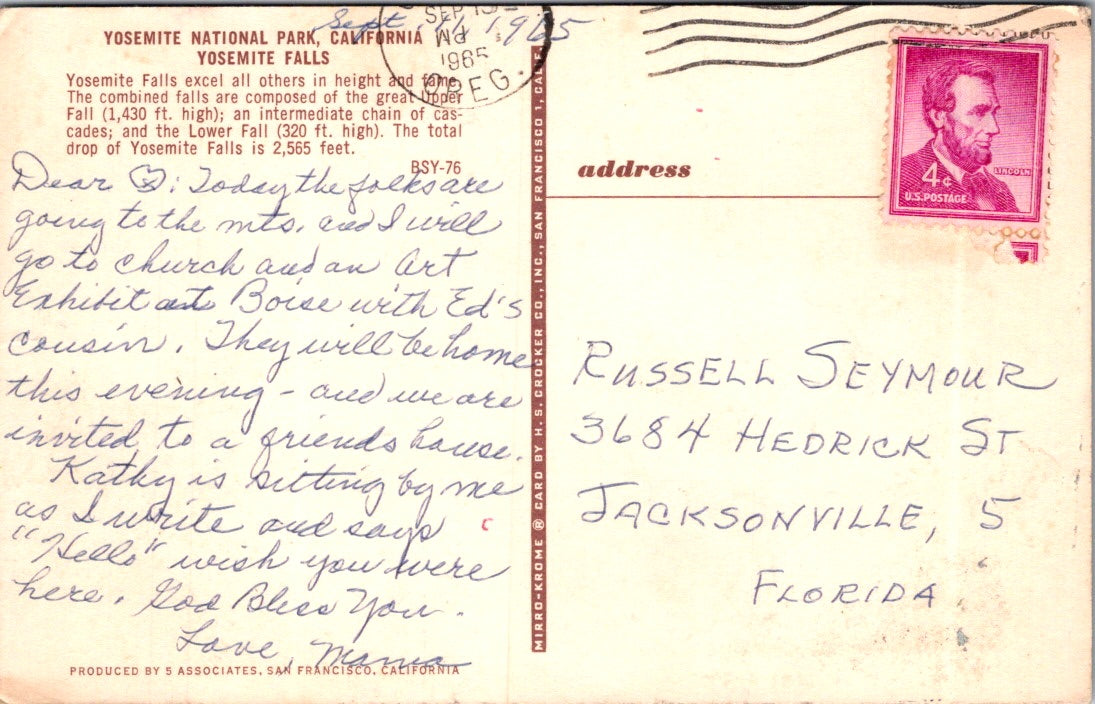 YOSEMITE NATIONAL PARK, CALIFORNIA
YOSEMITE FALLS
Yosemite Falls excel all others in height and fame.
The combined falls are composed of the great Upper
Fall (1,430 ft. high); an intermediate chain of cas-
cades; and the Lower Fall (320 ft. high). The total
drop of Yosemite Falls is 2,565 feet.
BSY-76
Sept. 1965
SEP
1965
OREG.
Dear : Today the folks are
going to the mts. and I will
go to church and an Art
Exhibit at Boise with Ed's
cousin. They will be home
this evening - and we are
invited to a friends house.
Kathy is sitting by me
as I write and says
"Hello" wish you were
here. God Bless You.
Love, Mama
PRODUCED BY 5 ASSOCIATES, SAN FRANCISCO, CALIFORNIA
MIRRO-KROME ® CARD BY H. S. CROCKER CO., INC., SAN FRANCISCO 1, CALIF.
address
LINCOLN
4¢
U.S. POSTAGE
RUSSELL SEYMOUR
3684 HEDRICK ST
JACKSONVILLE, 5
FLORIDA